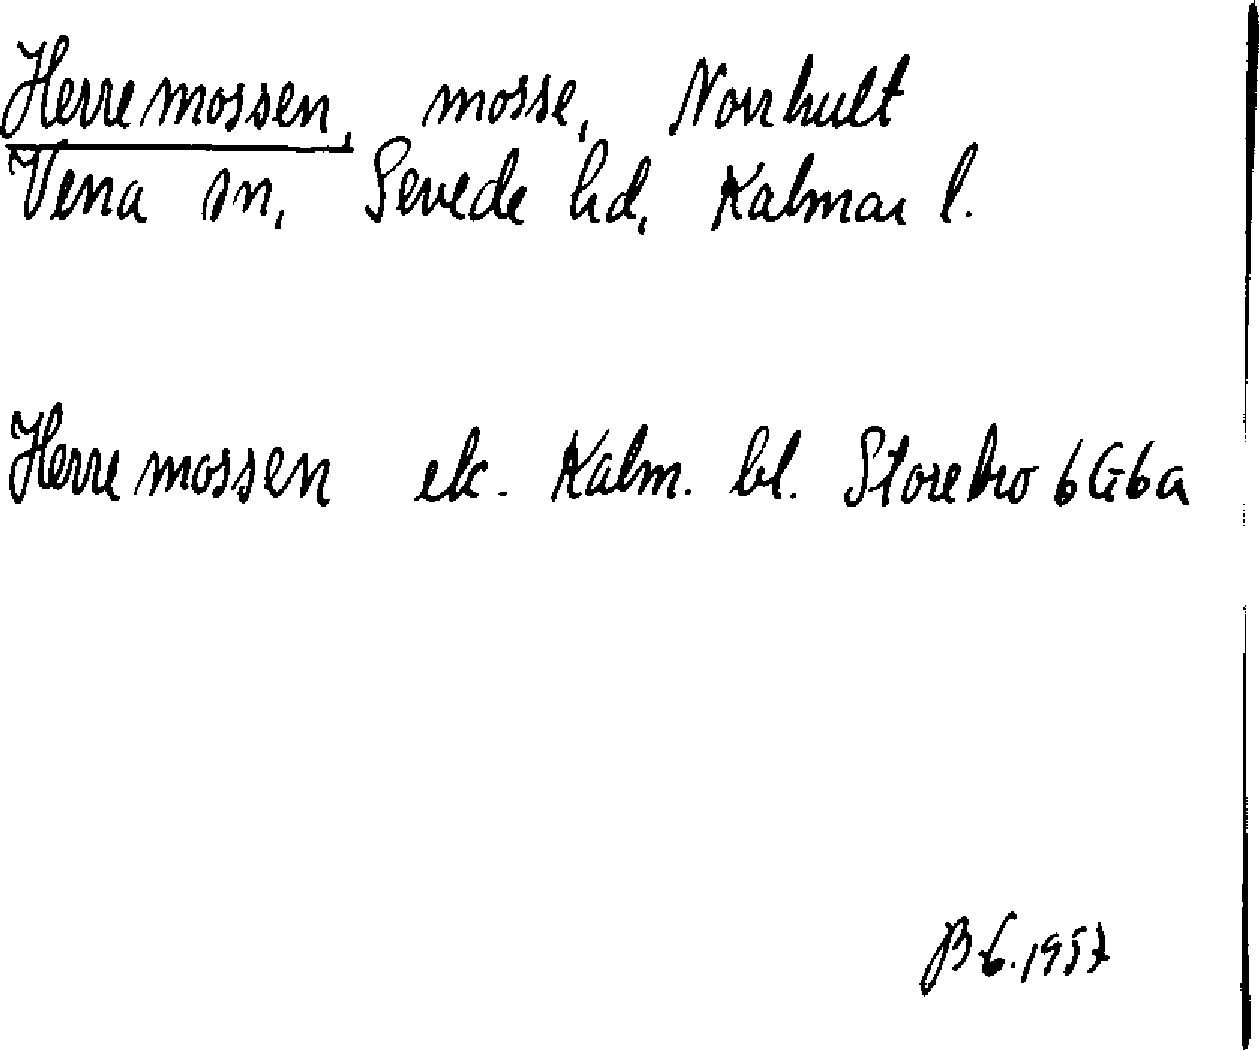 Herremossen, mosse, Norrhult
Vena sn, Sevede hd, Kalmar l.
Herremossen ek. Kalm. bl. Storebro 6G6a
BG. 1957